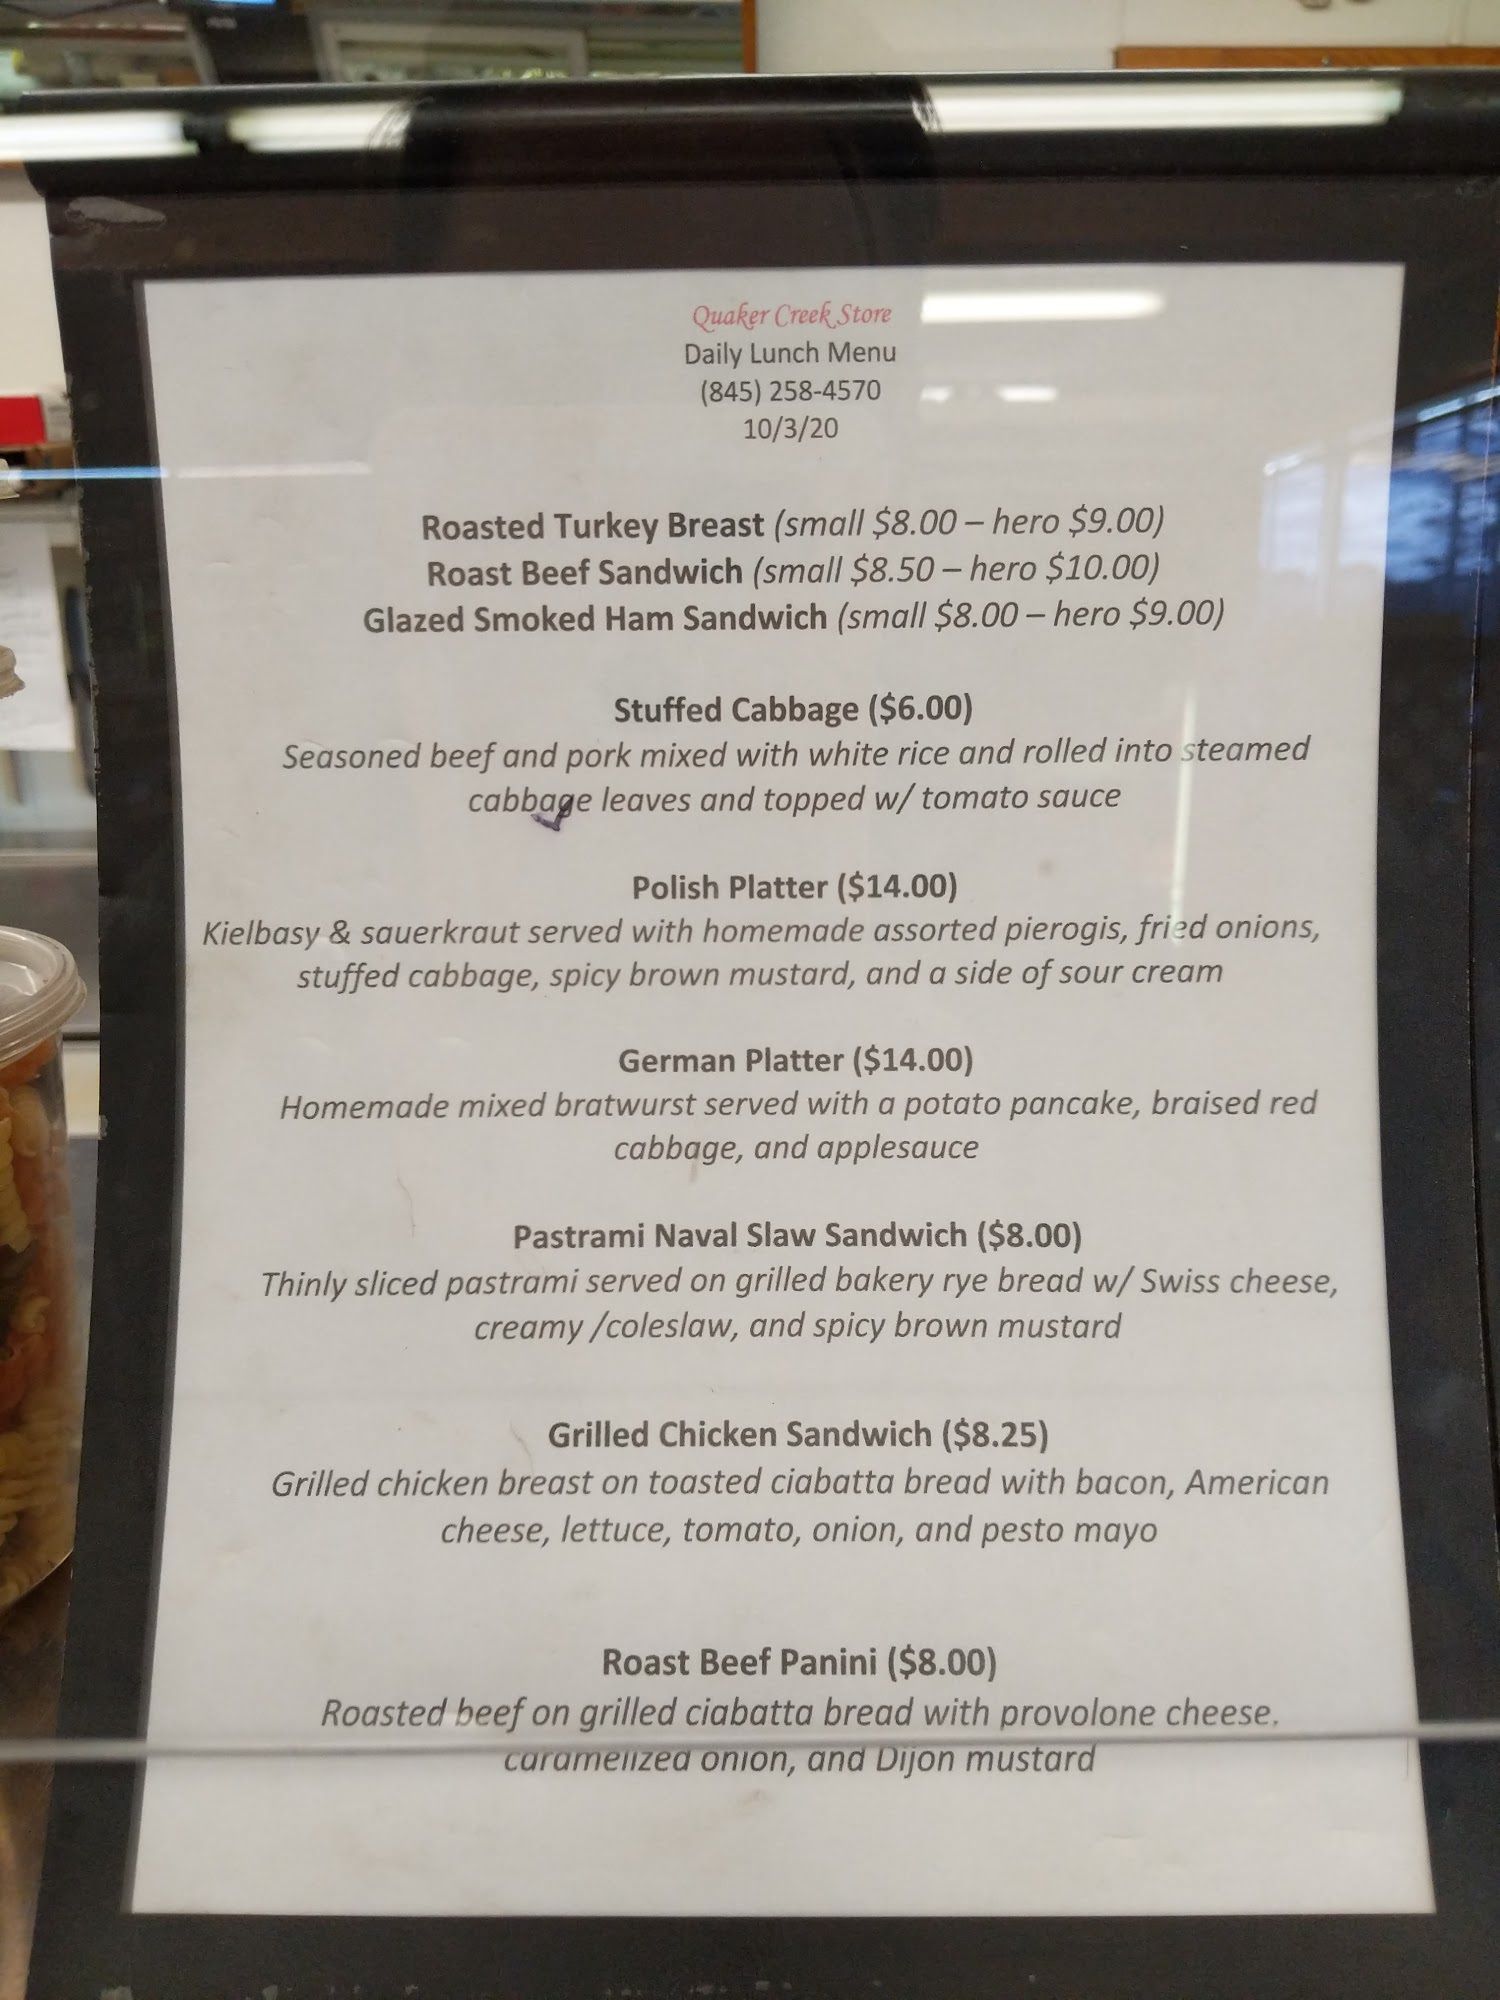 Quaker Creek Store
Daily Lunch Menu
(845) 258-4570
10/3/20
Roasted Turkey Breast (small $8.00 – hero $9.00)
Roast Beef Sandwich (small $8.50 – hero $10.00)
Glazed Smoked Ham Sandwich (small $8.00 – hero $9.00)
Stuffed Cabbage ($6.00)
Seasoned beef and pork mixed with white rice and rolled into steamed
cabbage leaves and topped w/ tomato sauce
Polish Platter ($14.00)
Kielbasy & sauerkraut served with homemade assorted pierogis, fried onions,
stuffed cabbage, spicy brown mustard, and a side of sour cream
German Platter ($14.00)
Homemade mixed bratwurst served with a potato pancake, braised red
cabbage, and applesauce
Pastrami Naval Slaw Sandwich ($8.00)
Thinly sliced pastrami served on grilled bakery rye bread w/ Swiss cheese,
creamy /coleslaw, and spicy brown mustard
Grilled Chicken Sandwich ($8.25)
Grilled chicken breast on toasted ciabatta bread with bacon, American
cheese, lettuce, tomato, onion, and pesto mayo
Roast Beef Panini ($8.00)
Roasted beef on grilled ciabatta bread with provolone cheese,
caramelized onion, and Dijon mustard